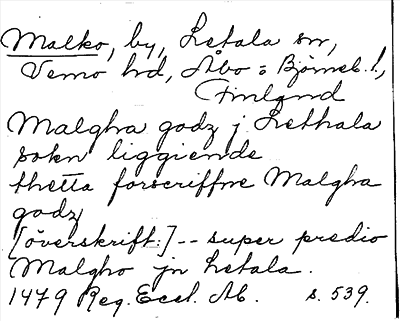 Malko, by, Letala sn,
Vemo hd, Åbo o Björneb. l.,
Finland
Malgha godz j Lethala
sokn liggiende
thetta forscriffne Malgha
godz
[överskrift:] -- super predio
Malgho jn Letala.
1479 Reg. Eccl. Ab. s. 539.